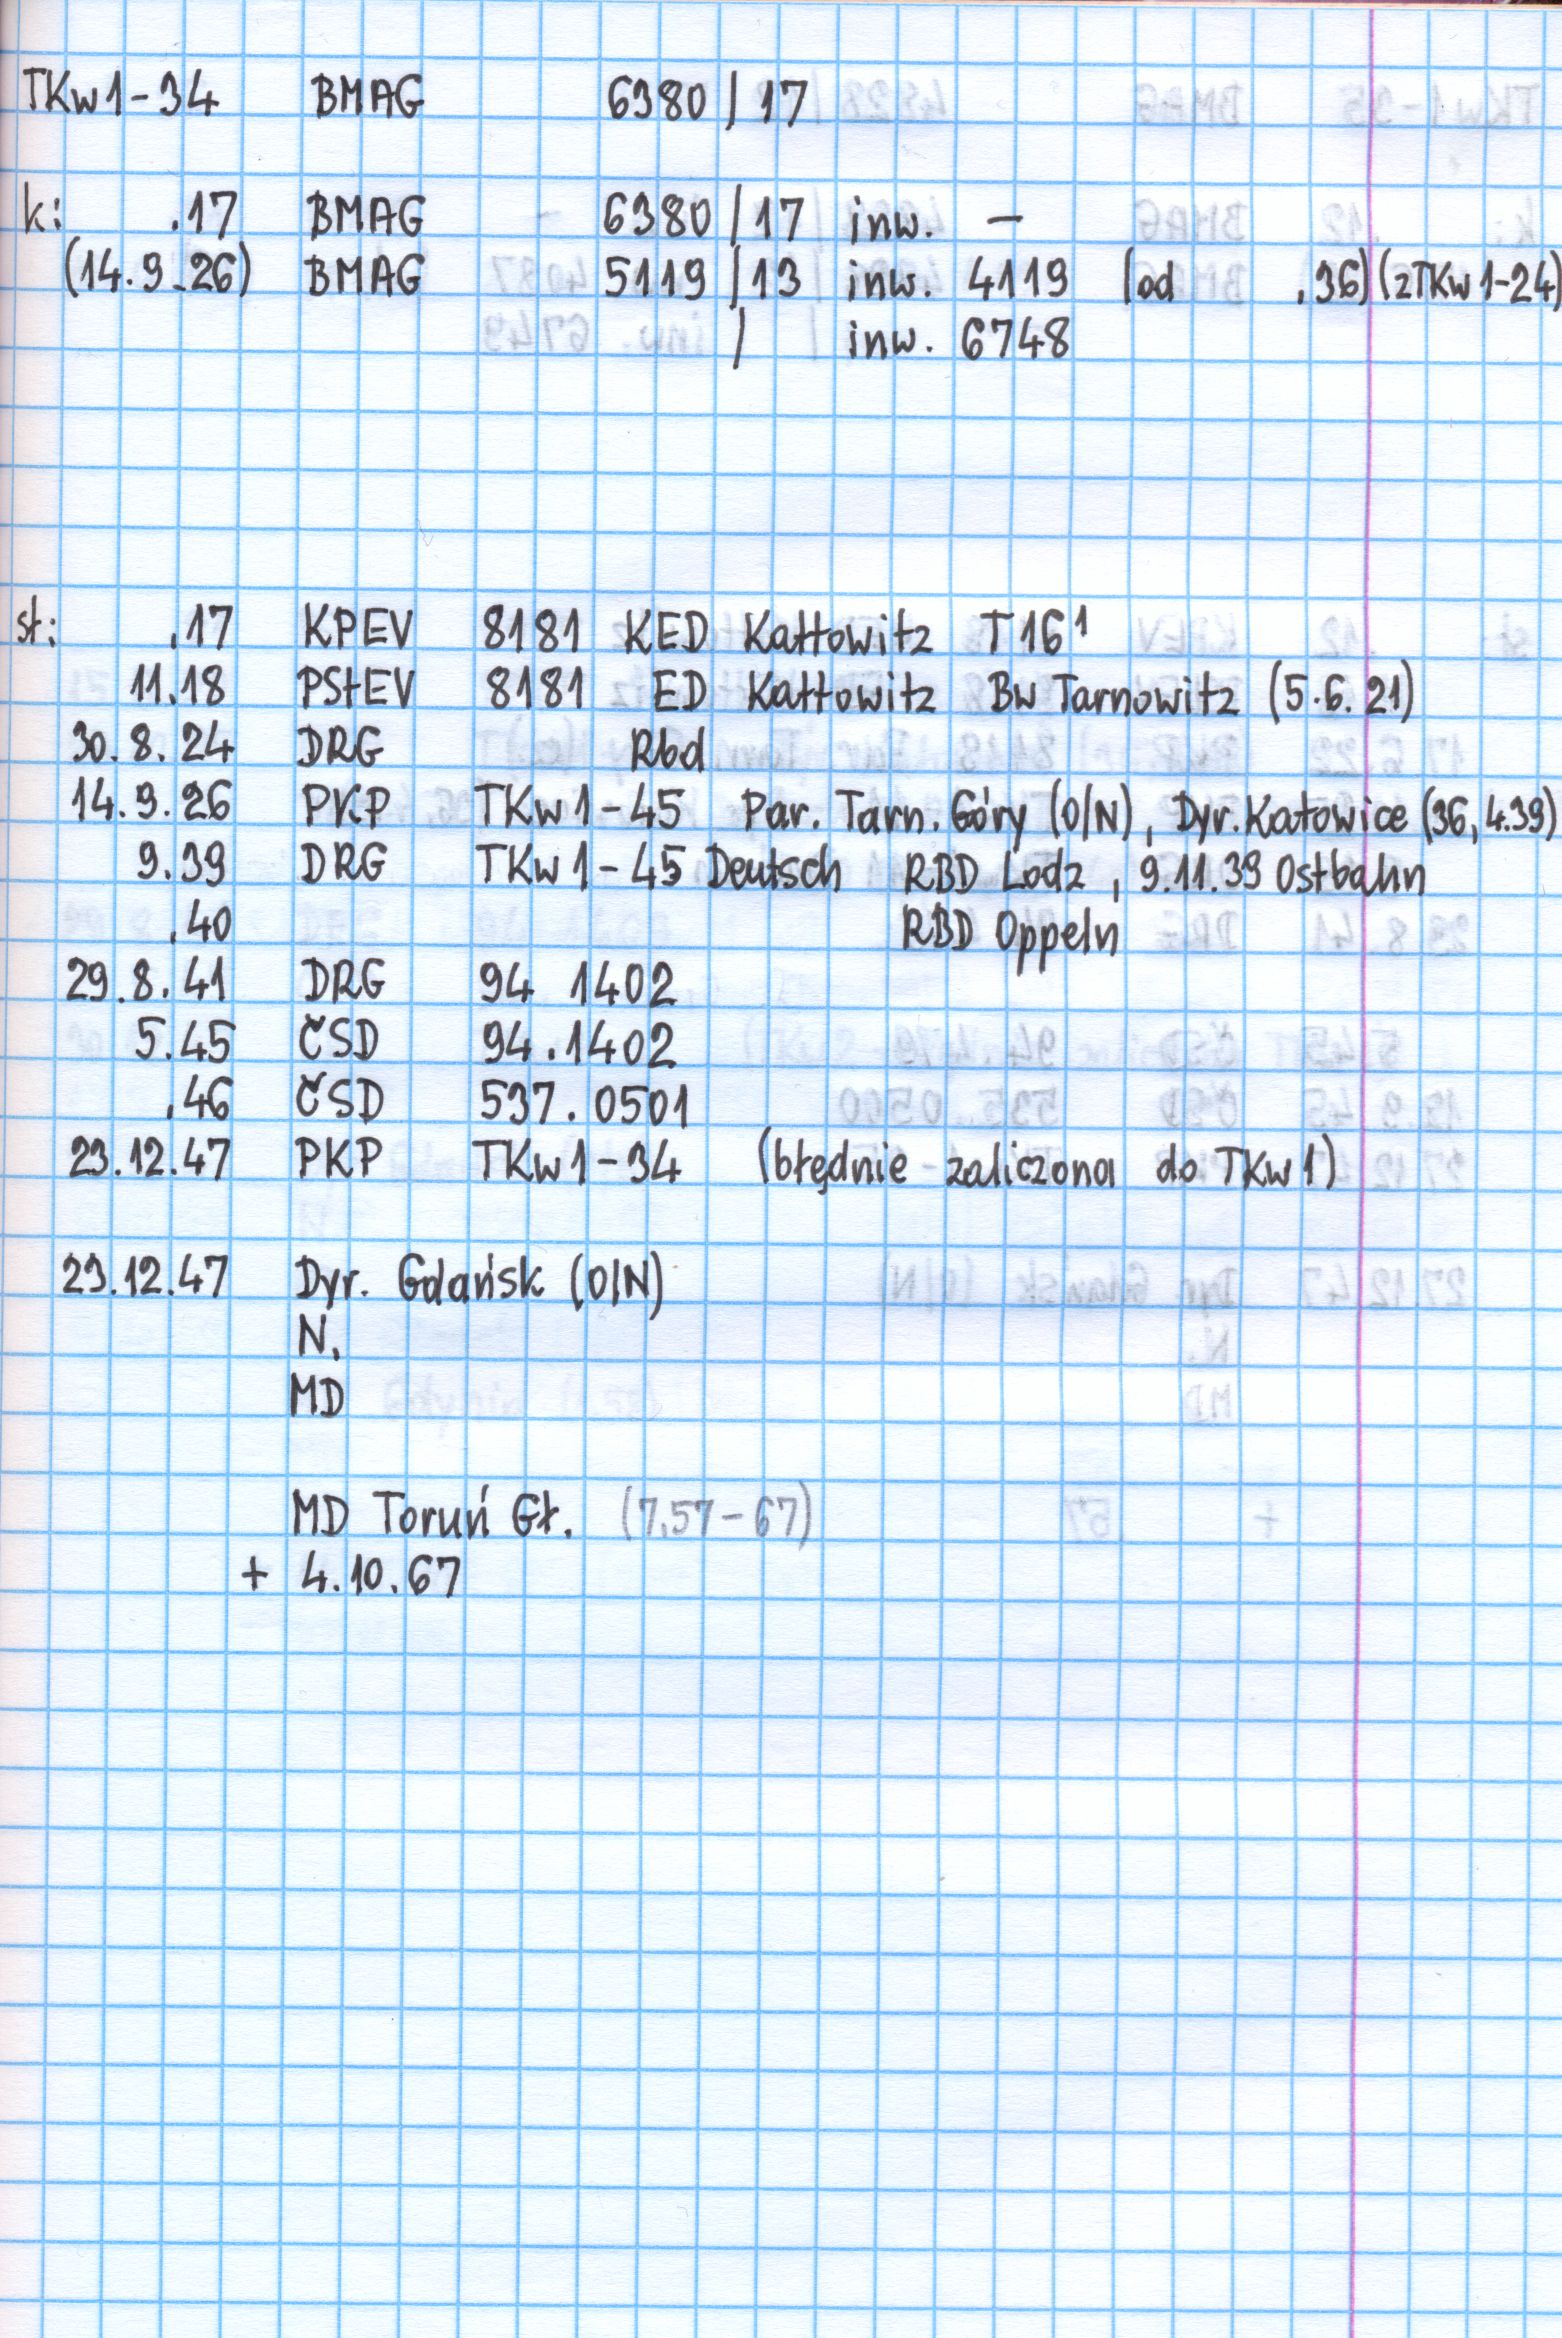 TKw1-34 BMAG 6380/17
k: .17 BMAG 6380/17 inw. -
(14.9.26) BMAG 5119/13 inw. 4119 (od .36) (z TKw1-24)
/ inw. 6748
st: .17 KPEV 8181 KED Kattowitz T16¹
11.18 PStEV 8181 ED Kattowitz Bw Tarnowitz (5.6.21)
30.8.24 DRG Rbd
14.9.26 PKP TKw1-45 Par. Tarn. Góry (O/N), Dyr. Katowice (36, 4.39)
9.39 DRG TKw1-45 Deutsch RBD Lodz, 9.11.39 Ostbahn
.40 RBD Oppeln
29.8.41 DRG 94 1402
5.45 ČSD 94.1402
.46 ČSD 537.0501
23.12.47 PKP TKw1-34 (błędnie zaliczona do TKw1)
23.12.47 Dyr. Gdańsk (O/N)
N.
MD
MD Toruń Gł. (7.57-67)
+ 4.10.67